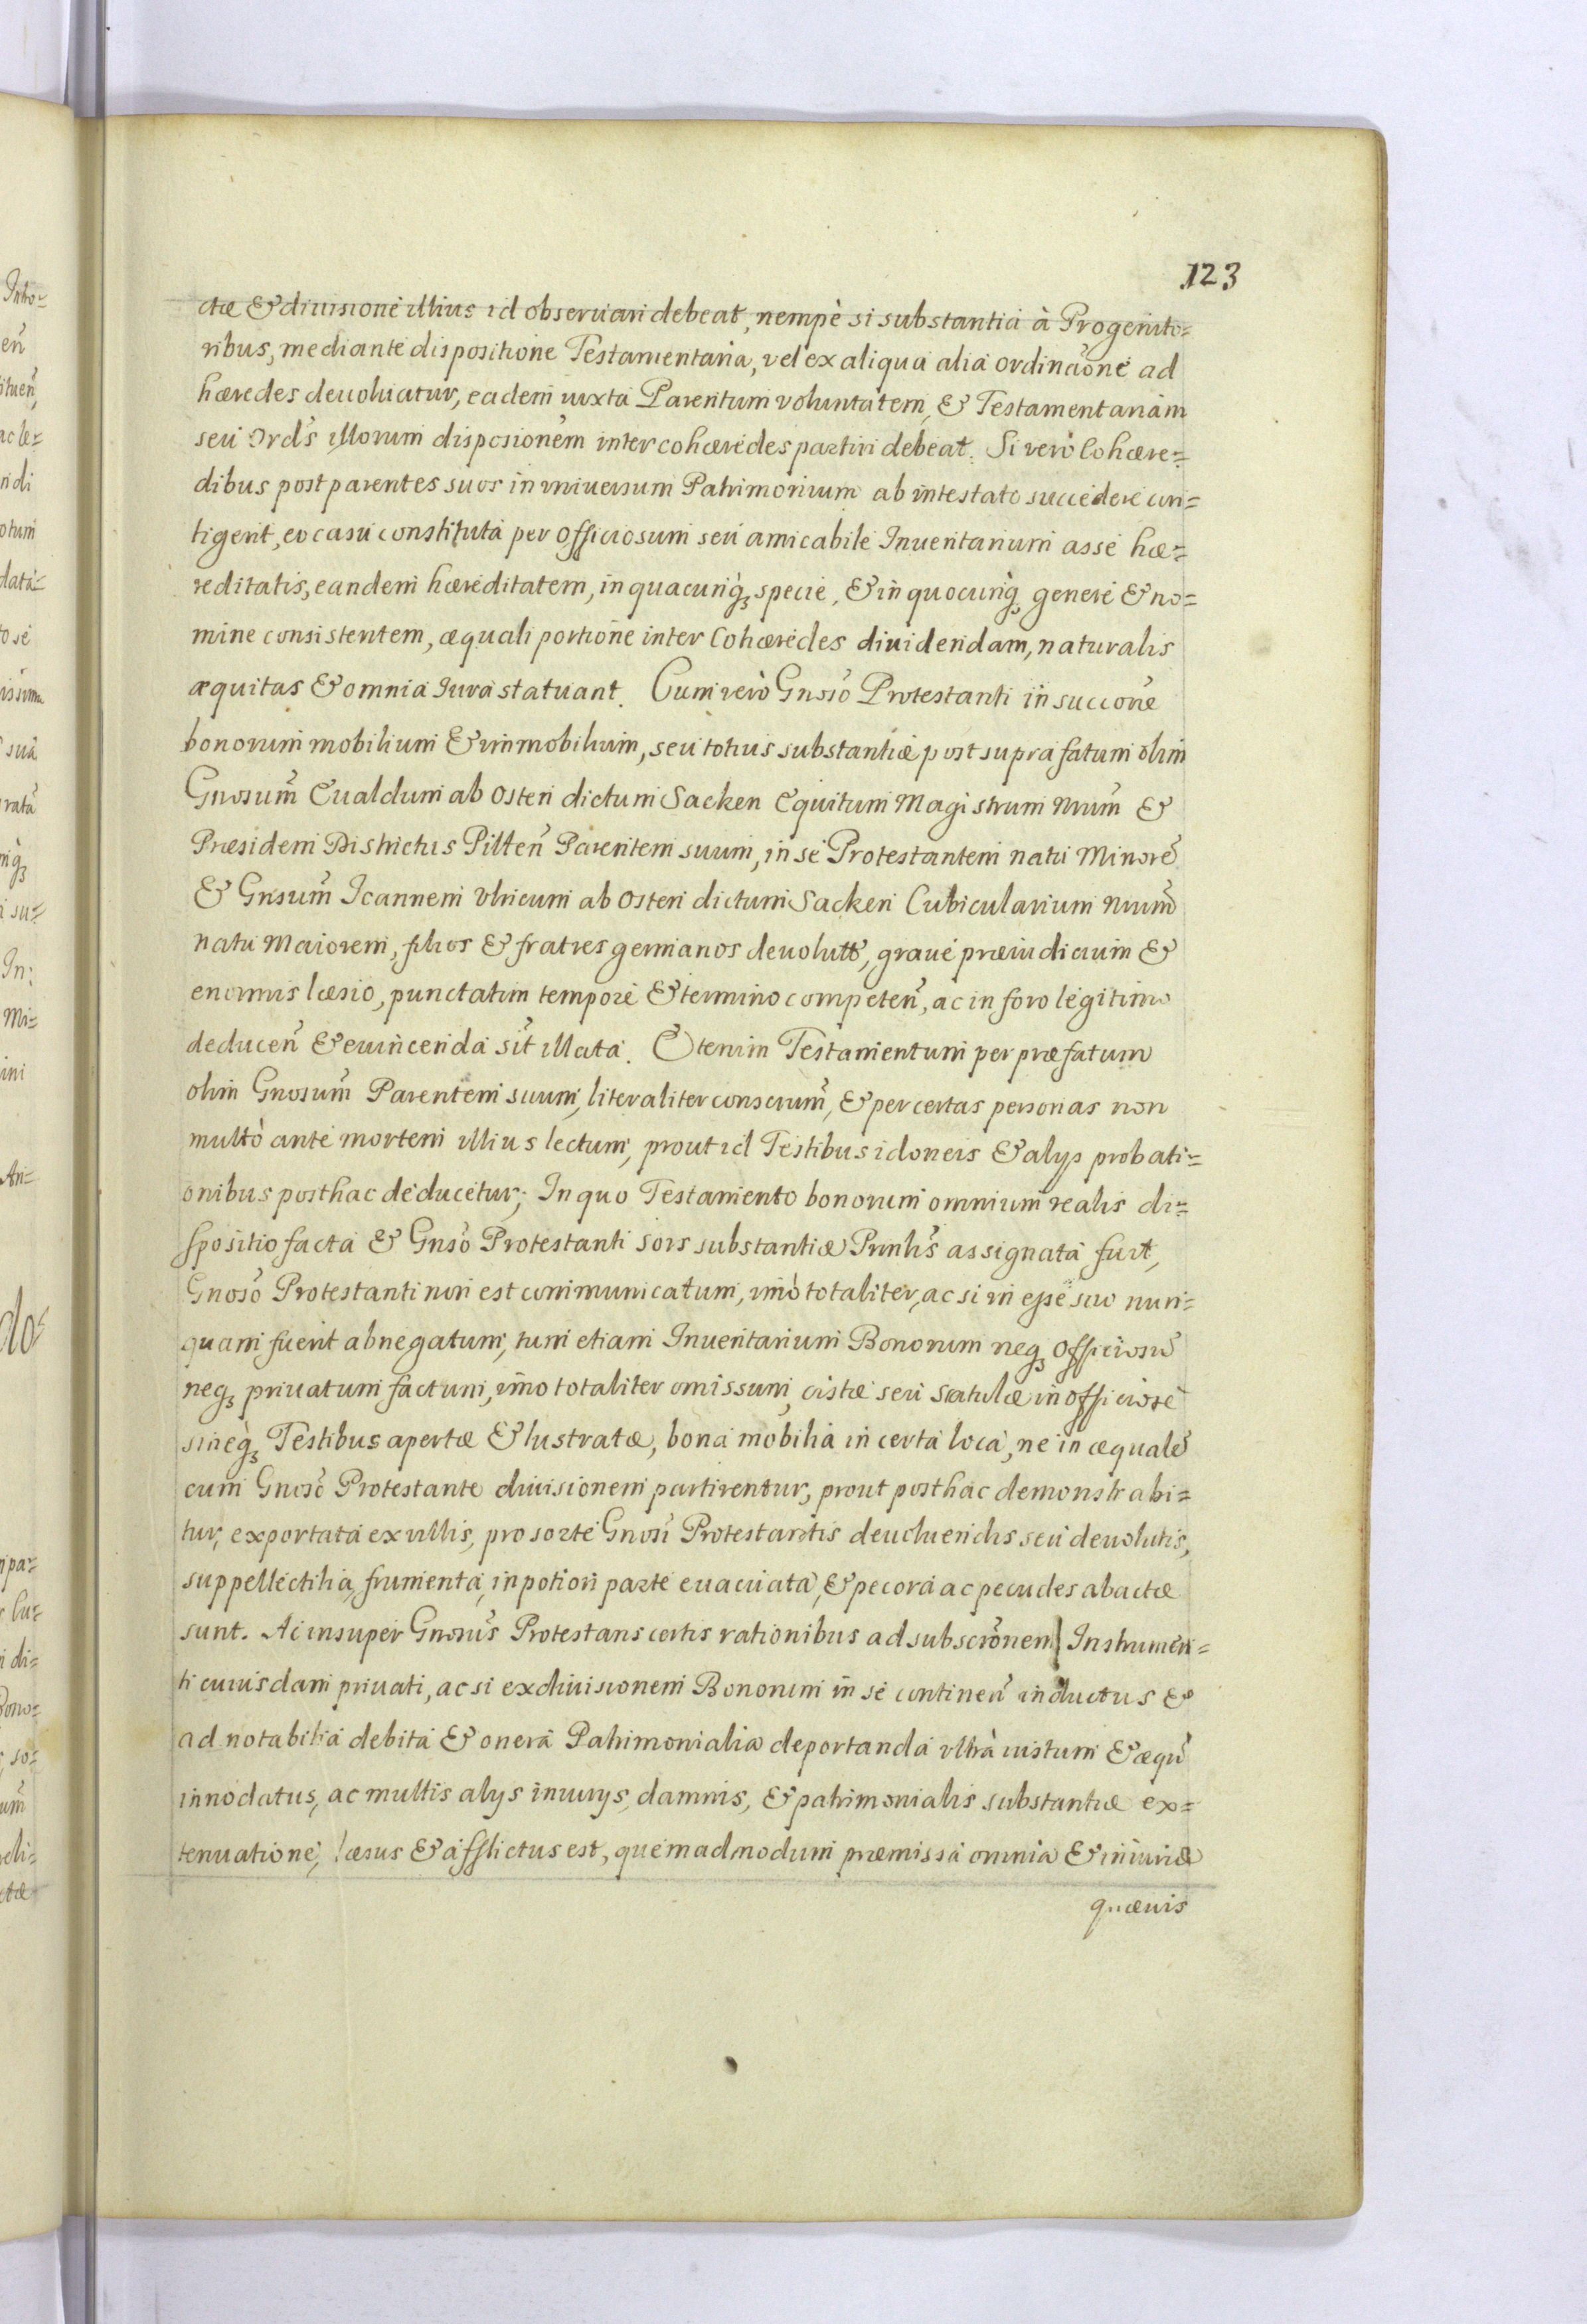 123
ctæ & diuisione illius id obseruari debeat, nempè si substantia à Progenito=
ribus, mediante dispositione Testamentaria, vel ex aliqua alia ordinaõne ad
hæredes deuoluatur, eadem iuxta Parentum voluntatem, & Testamentariam
seu Ords illorum disposionem inter cohæredes partiri debeat. Si verò Cohære=
dibus post parentes suos in vniuersum Patrimonium ab intestato succedere con=
tigerit, eo casu constituta per officiosum seu amicabile Inuentarium asse hæ=
reditatis, eandem hæreditatem, in quacunq̀ specie, & in quocunq̀ genere & no=
mine consistentem, æquali portione inter Cohæredes diuidendam, naturalis
æquitas & omnia Iura statuant. Cum verò Gnoso Protestanti in succone
bonorum mobilium & immobilium, seu totius substantiæ post supra fatum olim
Gnosum Eualdum ab Osten dictum Sacken Equitum Magistrum Nrum &
Præsidem Districtus Pilten Parentem suum, in se Protestantem natu Minore
& Gnsum Ioannem Vlricum ab Osten dictum Sacken Cubicularium Nrum
natu Maiorem, filios & fratres germanos deuolutæ, graue præiudicium &
enormis læsio, punctatim tempore & termino competen, ac in foro legitimo
deducen & euincenda sit illata. Etenim Testamentum per præfatum
olim Gnosum Parentem suum, literaliter conscrum, & per certas personas non
multò ante mortem illius lectum, prout id Testibus idoneis & alys probati=
onibus posthac deducetur; In quo Testamento bonorum omnium realis di=
spositio facta & Gnso Protestanti sors substantiæ Prnlis assignata fuit,
Gnoso Protestanti non est communicatum, imò totaliter, ac si in esse suo nun=
quam fuerit abnegatum, tum etiam Inuentarium Bonorum neq officiosu
neq priuatum factum, imo totaliter omissum, cistæ seu scatulæ inofficiose
sineq̀ Testibus apertæ & lustratæ, bona mobilia in certa loca, ne in æquale
cum Gnoso Protestante diuisionem partirentur, prout posthac demonstrabi=
tur, exportata ex villis, pro sorte Gnosi Protestantis deuoluendis seu deuolutis,
suppellectilia, frumenta, in potiori parte euacuata, & pecora ac pecudes abactæ
sunt. Ac insuper Gnosus Protestans certis rationibus ad subscronem Instrumen=
ti cuiusdam priuati, ac si exdiuisionem Bonorum in se continen inductus &
ad notabilia debita & onera Patrimonialia deportanda vltrà iustum & æqu
innodatus, ac multis alys iniurys, damnis, & patrimonialis substantiæ ex=
tenuatione, læsus & afflictus est, quemadmodum præmissa omnia & iniuriæ
quæuis